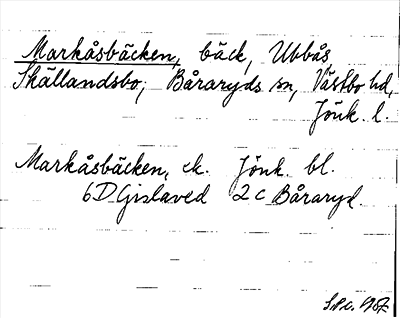 Markåsbäcken, bäck, Ubbås
Skällandsbo, Båraryds sn, Västbo hd,
Jönk. l.
Markåsbäcken, ek. Jönk. bl.
6D Gislaved 2c Båraryd.
1967